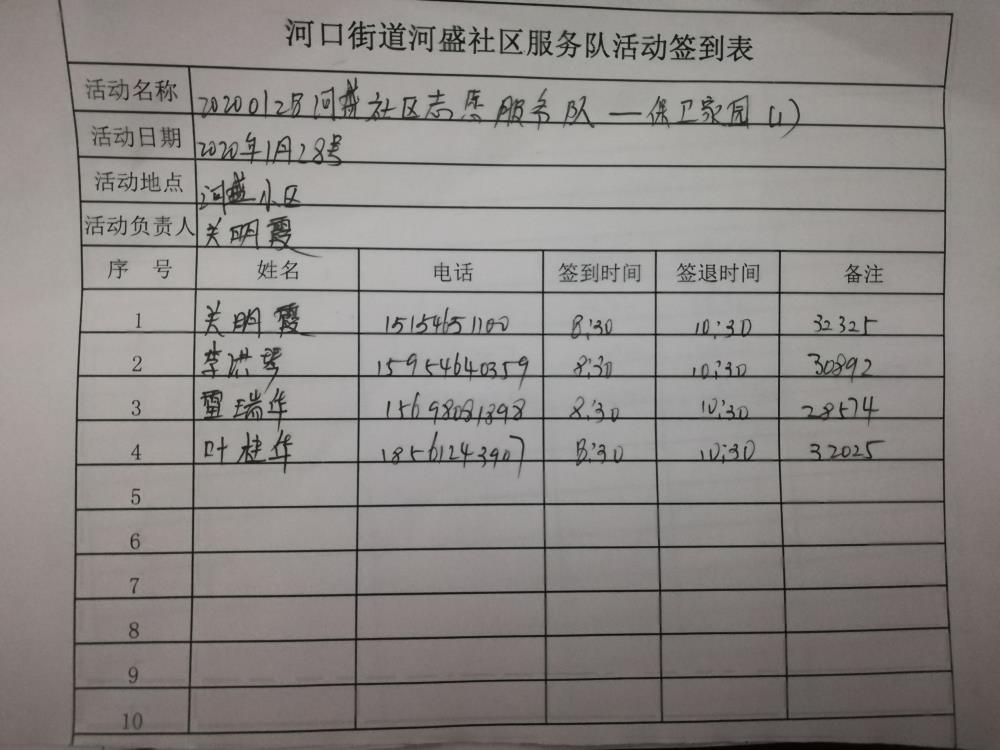 河口街道河盛社区服务队活动签到表
活动名称 20200128河盛社区志愿服务队—保卫家园(1)
活动日期 2020年1月28号
活动地点 河盛小区
活动负责人 关明霞
序号 姓名 电话 签到时间 签退时间 备注
1 关明霞 15154651100 8:30 10:30 32325
2 李洪琴 15954640359 8:30 10:30 30892
3 雷瑞华 15698081898 8:30 10:30 28574
4 叶桂华 18561243907 8:30 10:30 32025
5
6
7
8
9
10